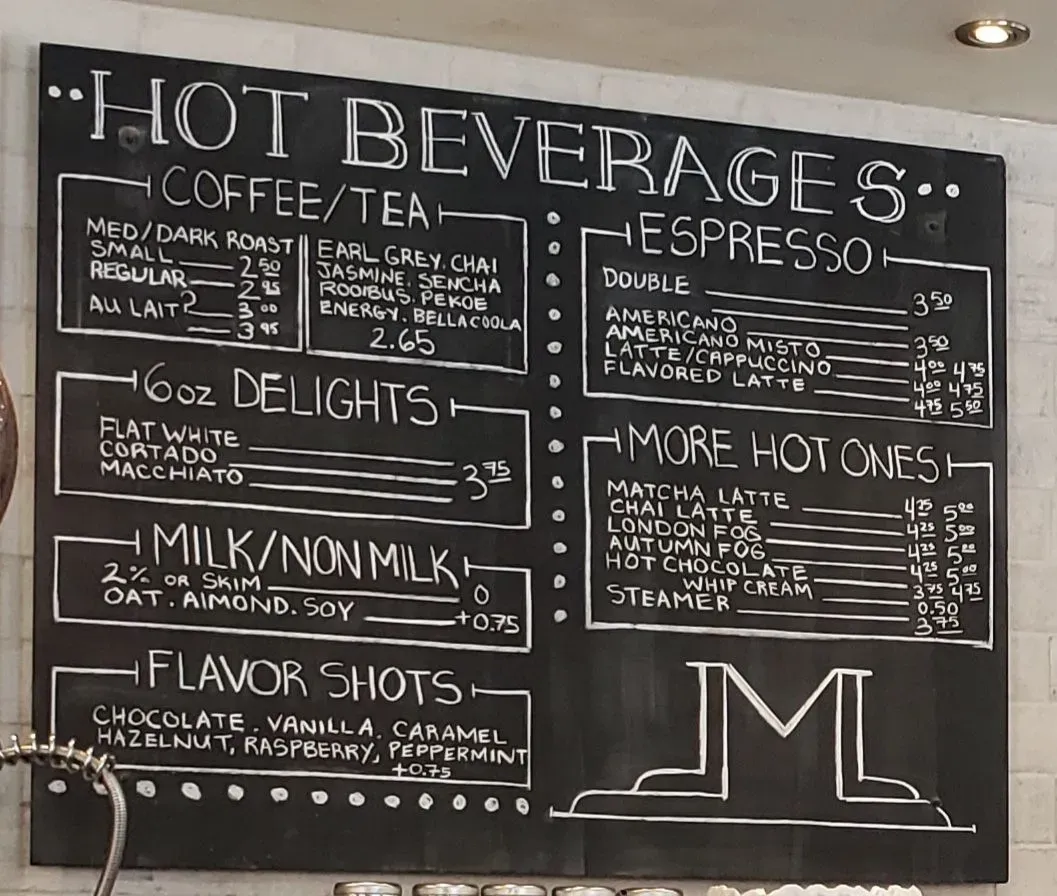 HOT BEVERAGES
COFFEE/TEA
MED/DARK ROAST
SMALL 2.50
REGULAR 2.95
AU LAIT? 3.00
3.95
EARL GREY. CHAI
JASMINE. SENCHA
ROOIBUS. PEKOE
ENERGY. BELLACOOLA
2.65
6oz DELIGHTS
FLAT WHITE
CORTADO
MACCHIATO 3.75
MILK/NON MILK
2% OR SKIM 0
OAT. AlMOND. SOY +0.75
FLAVOR SHOTS
CHOCOLATE. VANILLA. CARAMEL
HAZELNUT, RASPBERRY, PEPPERMINT
+0.75
ESPRESSO
DOUBLE 3.50
AMERICANO 3.50
AMERICANO MISTO 4.00 4.75
LATTE/CAPPUCCINO 4.00 4.75
FLAVORED LATTE 4.75 5.50
MORE HOT ONES
MATCHA LATTE 4.25 5.00
CHAI LATTE 4.25 5.00
LONDON FOG 4.25 5.00
AUTUMN FOG 4.25 5.00
HOT CHOCOLATE 3.75 4.75
WHIP CREAM 0.50
STEAMER 3.75
M